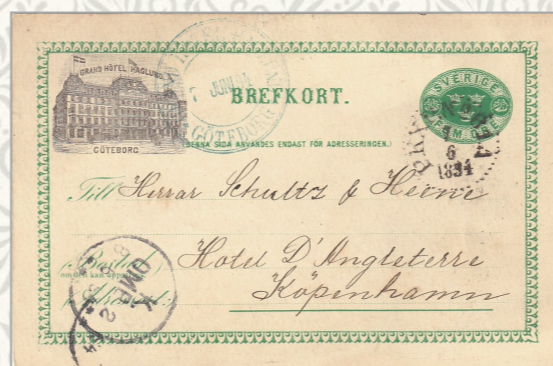 GRAND HÔTEL HAGLUND
GÖTEBORG
7 JUNI
GÖTEBORG
BREFKORT.
SVERIGE
FEM ÖRE
(DENNA SIDA ANVÄNDES ENDAST FÖR ADRESSERINGEN.)
6
1894
Till Herrar Schultz & Heine
Hotel D'Angleterre
Köpenhamn
K
OMB 2